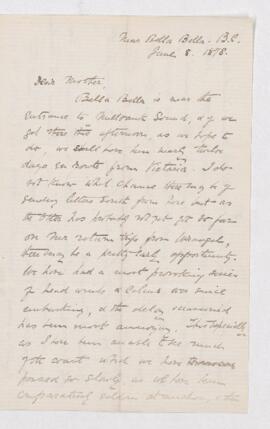 Near Bella Bella - B.C.
June 8. 1878.
Dear Mother,
Bella Bella is near the
entrance to Millbank Sound, & if we
got there this afternoon, as we hope to
do, we will have been nearly twelve
days en route from Victoria. I do
not know what chance there may be of
sending letters South from here but as
the Otter has probably not yet got so far
on her return trip from Wrangel,
there may be a pretty early opportunity.
We have had a most provoking series
of head winds & calms ever since
embarking, & the delay occasioned
has been most annoying. This especially
as I have been unable to see much
of the coast which we have
passed so slowly, as we have been
comparatively seldom at anchor, & the